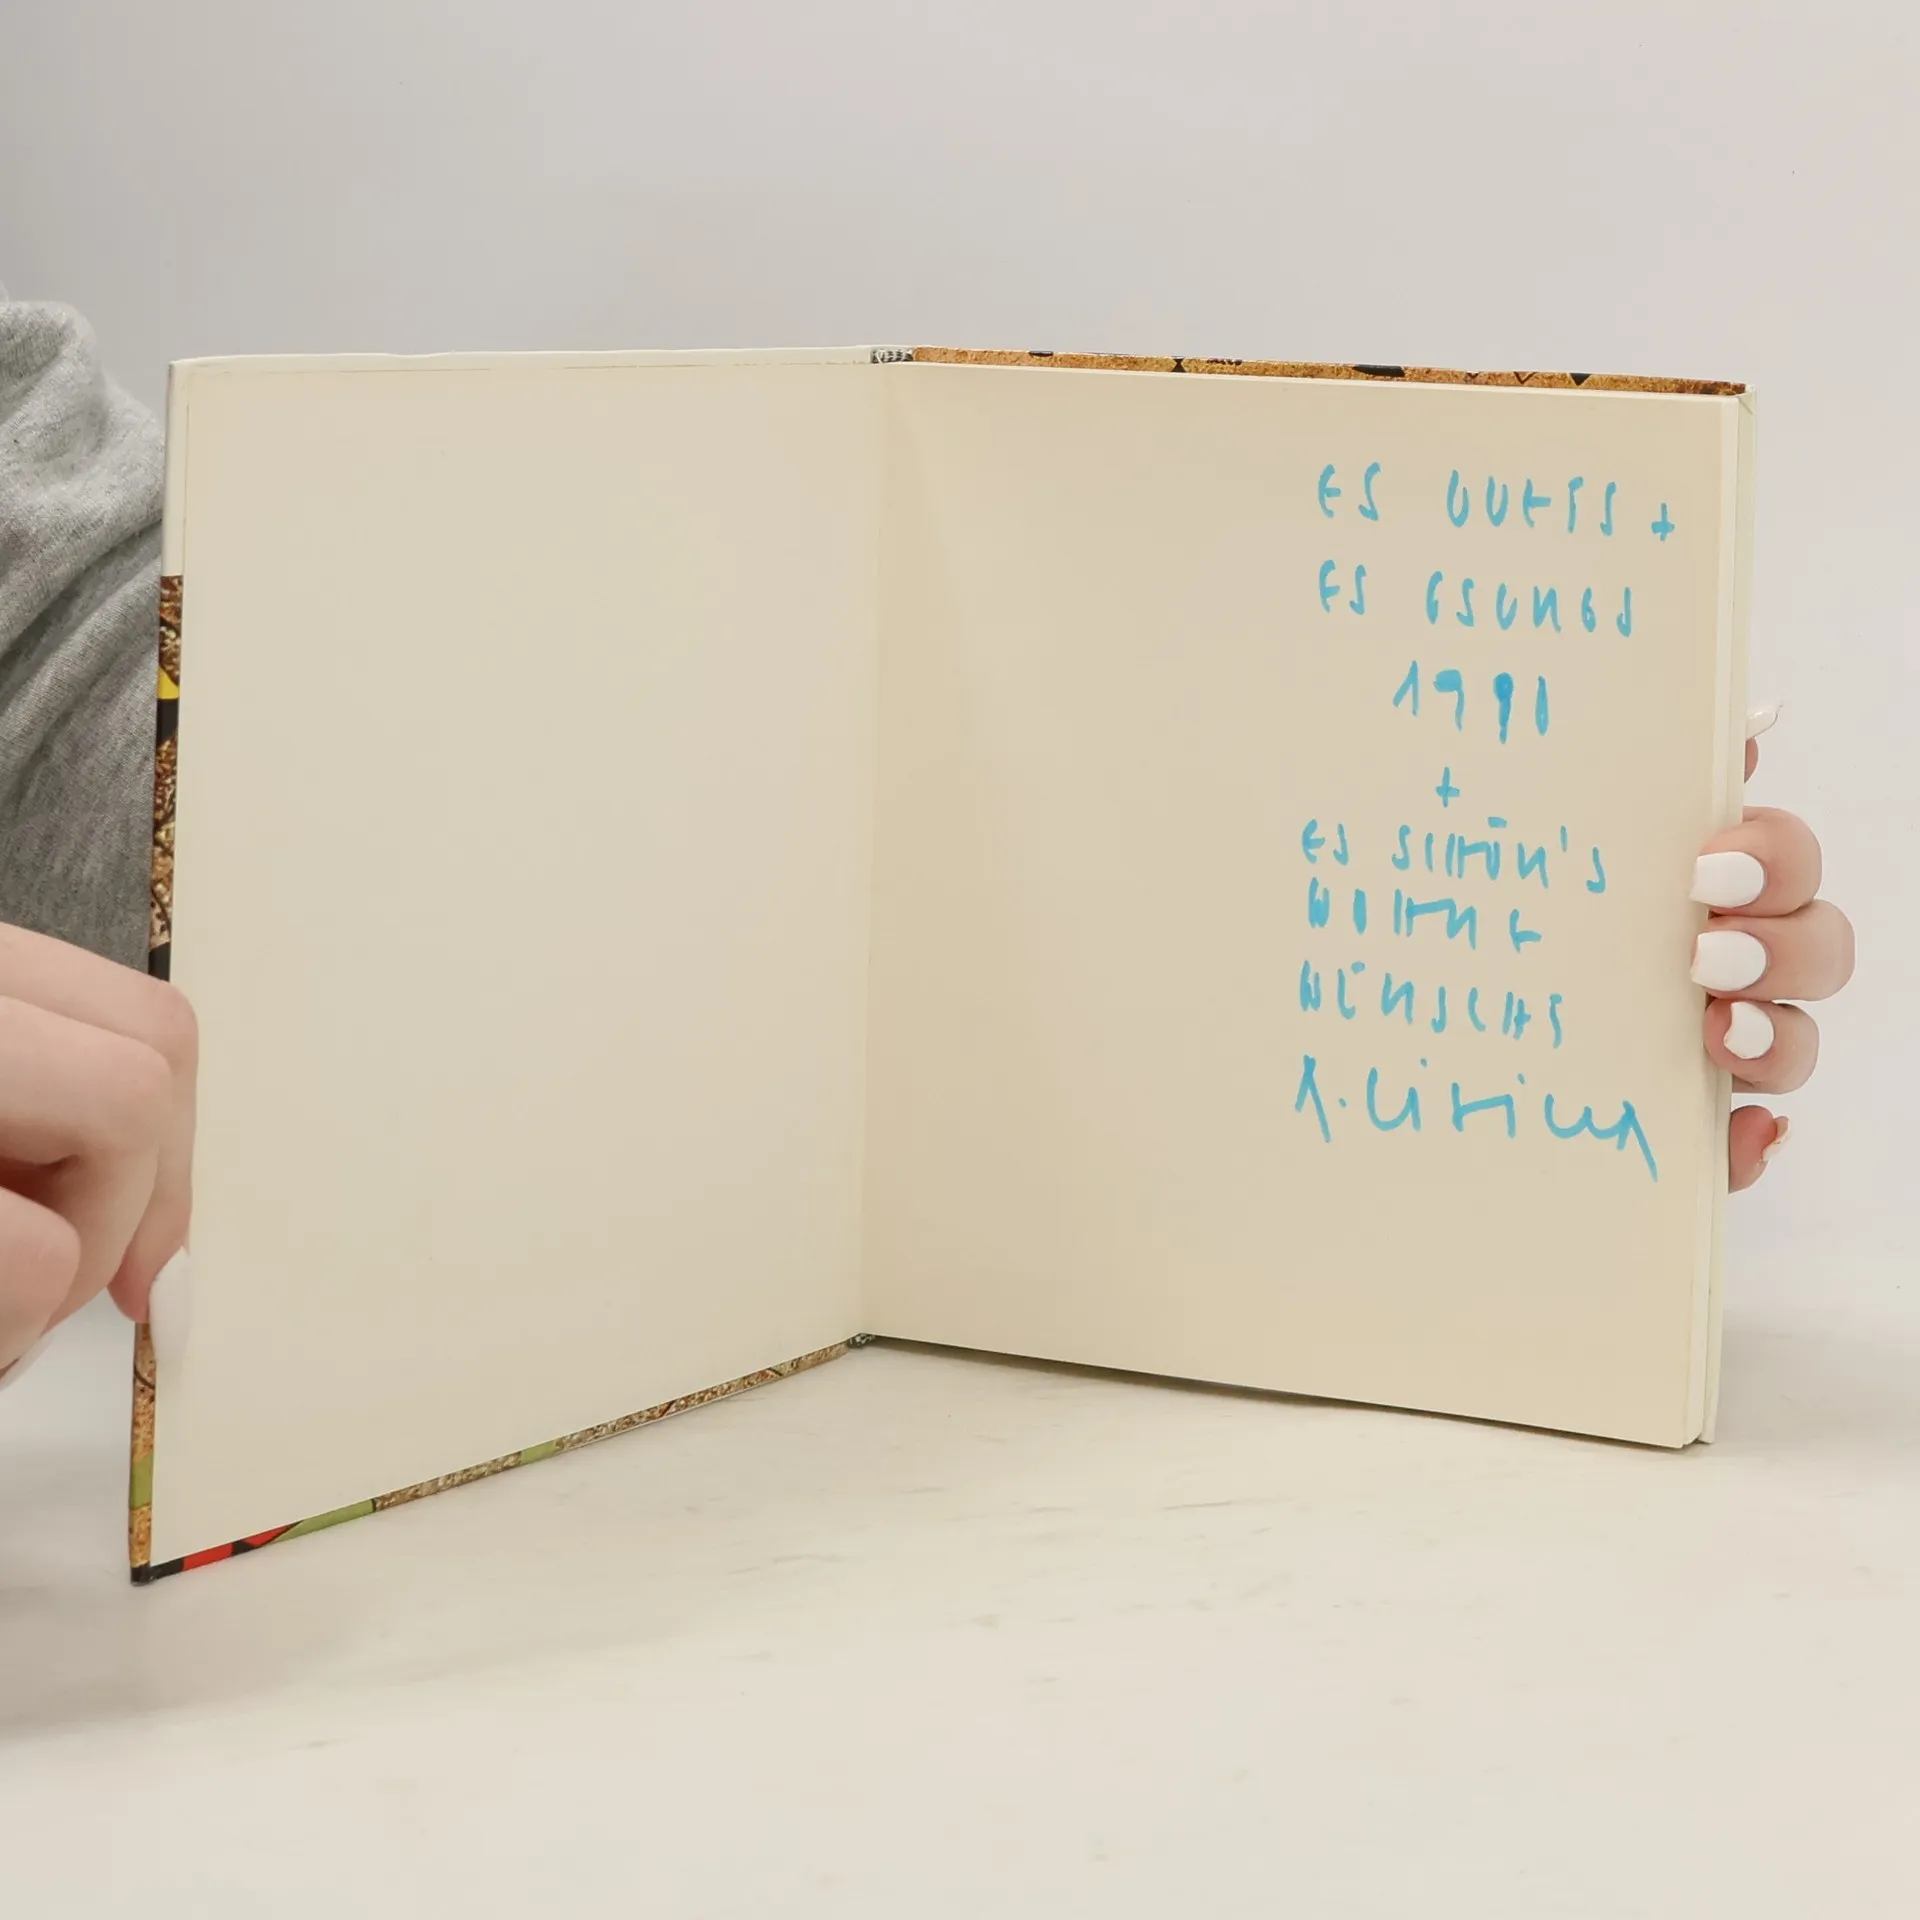 ES GUETS +
ES GSUNDS
1990
+
ES SCHÖN'S
WOHNE
WÜNSCHT